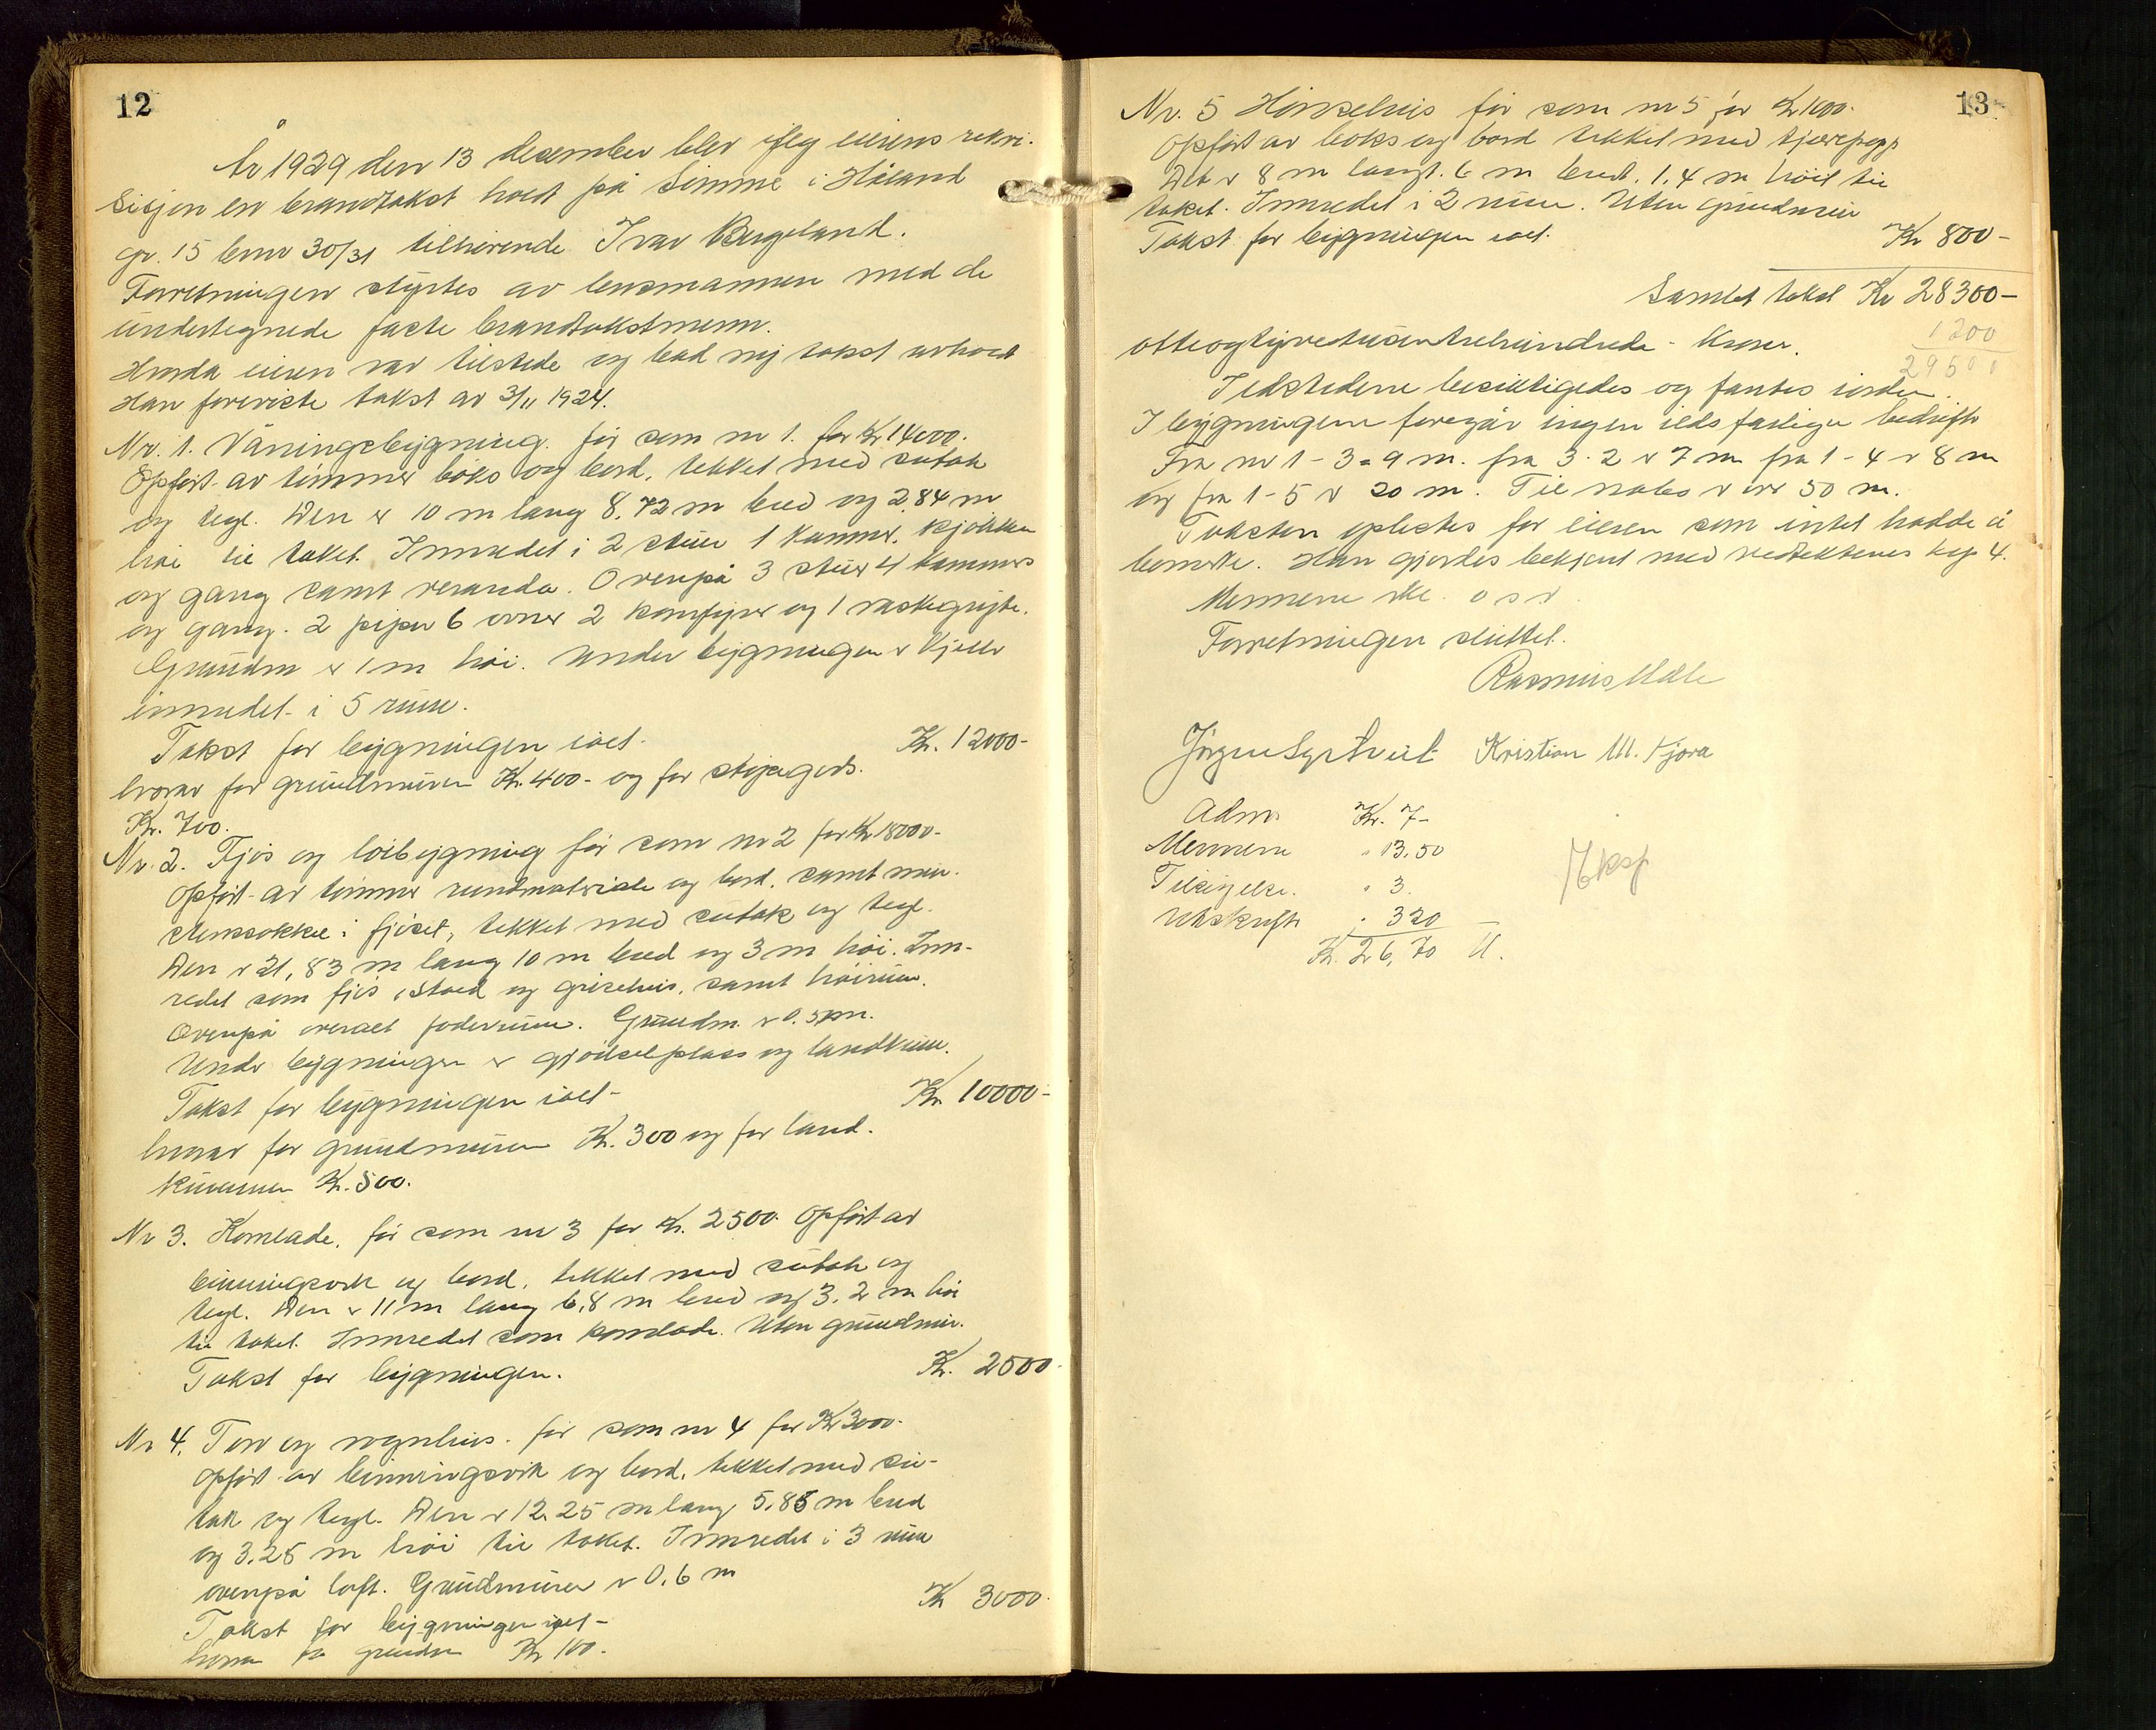 12
År 1929 den 13 desember blev ifølg eierens rekvi-
sisjon en brandtakst holdt på Sømme i Håland
gr. 15 brnr 30/31 tilhørende Ivar Bergeland.
Forretningen styrtes av lensmannen med de
undertegnede faste brandtakstmenn.
Hvorda eieren var tilstede og bad sig takst avholdt
Han foreviste takst av 3/11 1924.
Nr. 1. Våningsbygning. før som nr 1. for Kr 14000.
Opført av tømmer boks og bord, tekket med sutak
og tegl. Den er 10 m lang 8,72 m bred og 2,84 m
høi til taket. Innredet i 2 stuer 1 kammer, kjøkken
og gang samt veranda. Ovenpå 3 stuer 4 kammers
og gang. 2 piper 6 ovner 2 komfyrer og 1 vaskegryte.
Grundm er 1 m høi. Under bygningen er kjeller
innredet i 5 rum.
Takst for bygningen ialt. Kr. 12000-
hvorav for grundmuren Kr. 400- og for støpegods.
Kr. 700.
Nr. 2. Fjøs og løibygning før som nr 2 for Kr 18000-
Opført av tømmer rundmateriale og bord, samt mur.
stenssokkel i fjøset, tekket med sutak og tegl.
Den er 21,83 m lang 10 m bred og 3 m høi. Inn-
redet som fjøs, stald og grisehus, samt høirum.
Ovenpå overalt foderrum. Grundm. er 0.5 m.
Under bygningen er gjødselplass og landkum.
Takst for bygningen ialt- Kr. 10000-
hvorav for grundmuren Kr. 300 og for land.
kummen Kr. 500.
Nr 3. Kornlade, før som nr 3 for Kr. 2500. Opført av
binningsverk og bord, tekket med sutak og
tegl. Den er 11 m lang 6,8 m bred og 3,2 m høi
til taket. Innredet som kornlade. Uten grundmur.
Takst for bygningen. Kr. 2500.
Nr 4. Torv og vognhus. før som nr 4 for Kr 3000-
opført av binningsverk og bord, tekket med su-
tak og tegl. Den er 12,25 m lang 5,85 m bred
og 3,25 m høi til taket. Innredet i 3 rum
ovenpå loft. Grundmuren er 0,6 m
Takst for bygningen ialt- Kr 3000.
hvorav for grundm Kr 100.
13
Nr. 5 Hønsehus før som nr 5 for Kr 1000.
Opført av boks og bord tekket med tjærepapp
Det er 8 m langt. 6 m bredt. 1,4 m høit til
taket. Innredet i 2 rum. Uten grundmur
Takst for bygningen ialt. Kr 800-
Samlet takst Kr 28300-
1200
29500
otteogtyvetusentrehundrede - Kroner.
Ildstedene besiktigedes og fantes iorden.
I bygningene foregår ingen ildsfarlige bedrift
Fra nr 1-3 = 9 m. fra 3-2 er 7 m fra 1-4 er 8 m
og fra 1-5 er 20 m. Til nabo er over 50 m.
Taksten oplestes for eieren som intet hadde å
bemerke. Han gjordes bekjent med vedtektenes kap 4.
Mennene o s v.
Forretningen sluttet.
Rasmus
Jørgen Kristian M. Kjora
Adm. Kr. 7-
Mennene " 13.50
Tilsigelse. " 3.
Utskrift " 320
Kr. 26,70
Eksp